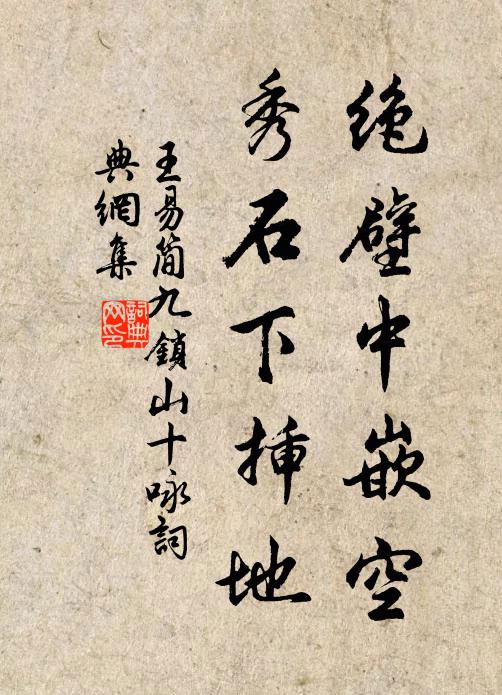 绝壁中嵌空
秀石下插地
王易简九鎖山十咏詞
典網集
詞典
网印